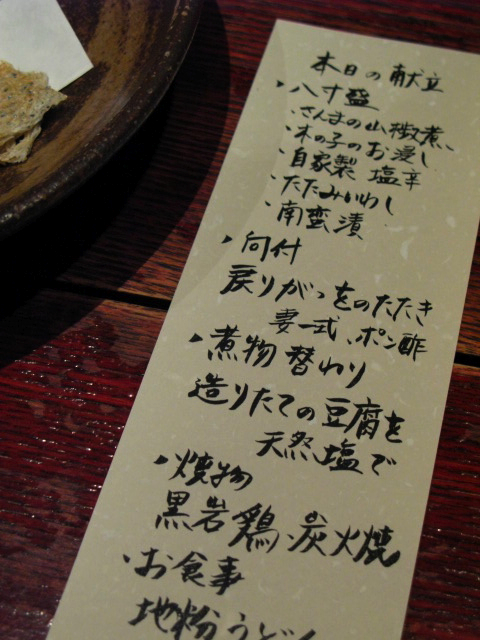 本日の献立
・八寸盛
・さんまの山椒煮、
・木の子のお浸し
・自家製 塩辛
・たたみいわし
・南蛮漬
・向付
戻りがつをのたたき
妻一式、ポン酢
・煮物替わり
造りたての豆腐を
天然塩で
・焼物
黒岩鶏、炭火焼
・お食事
地粉うどん